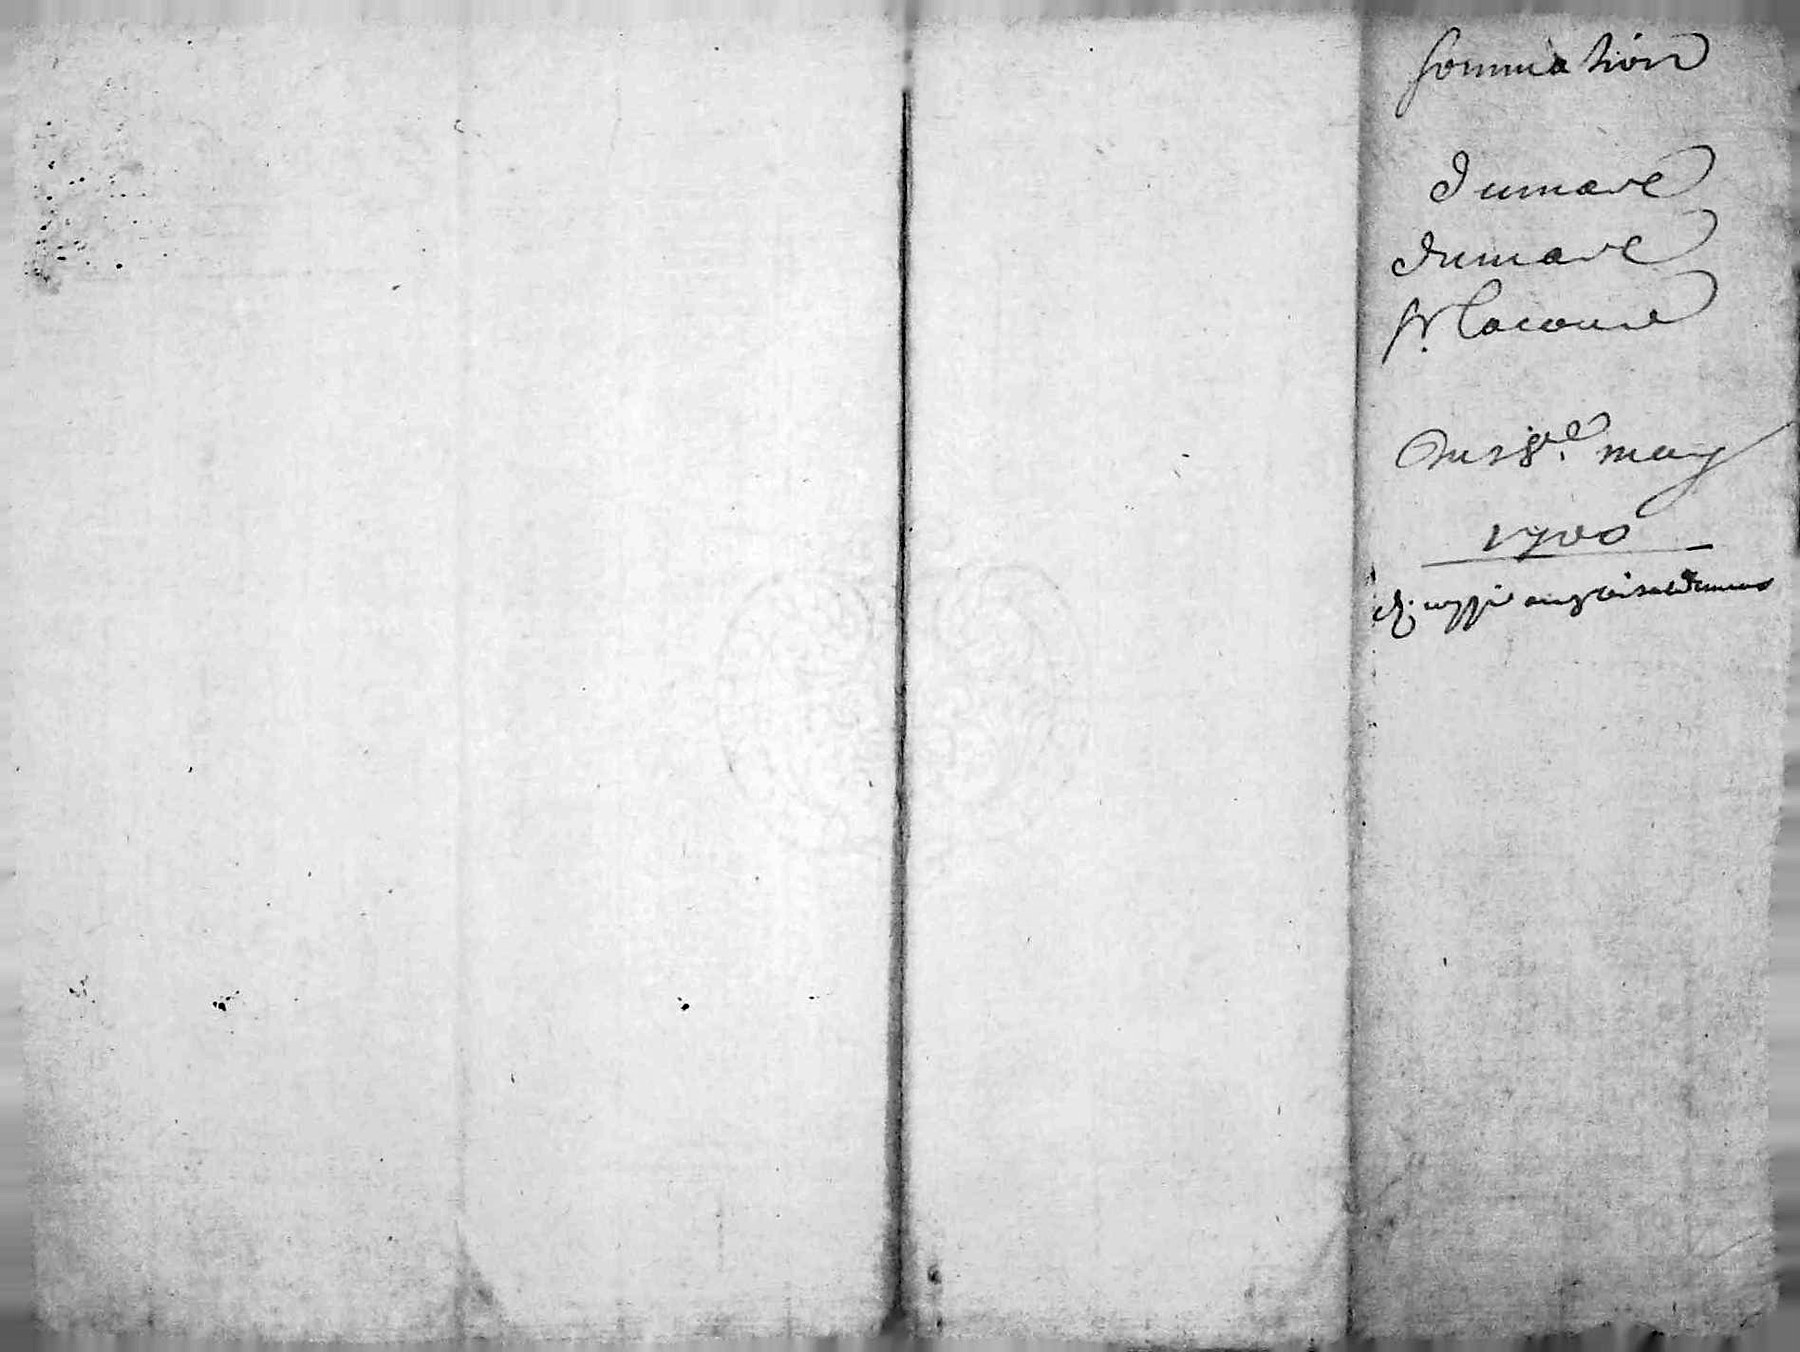 Sommation
Dumare
Dumare
Sr. Lacoure
Du 18e. may
1700